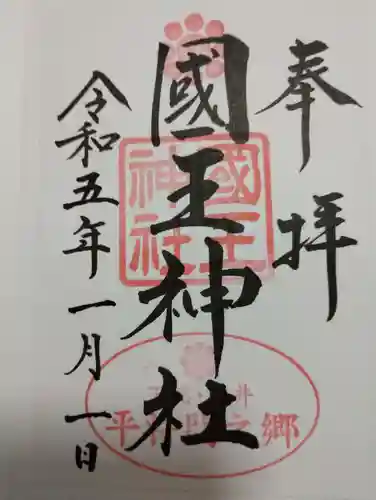 奉拝
國王神社
令和五年一月一日
國王神社
平将門之郷